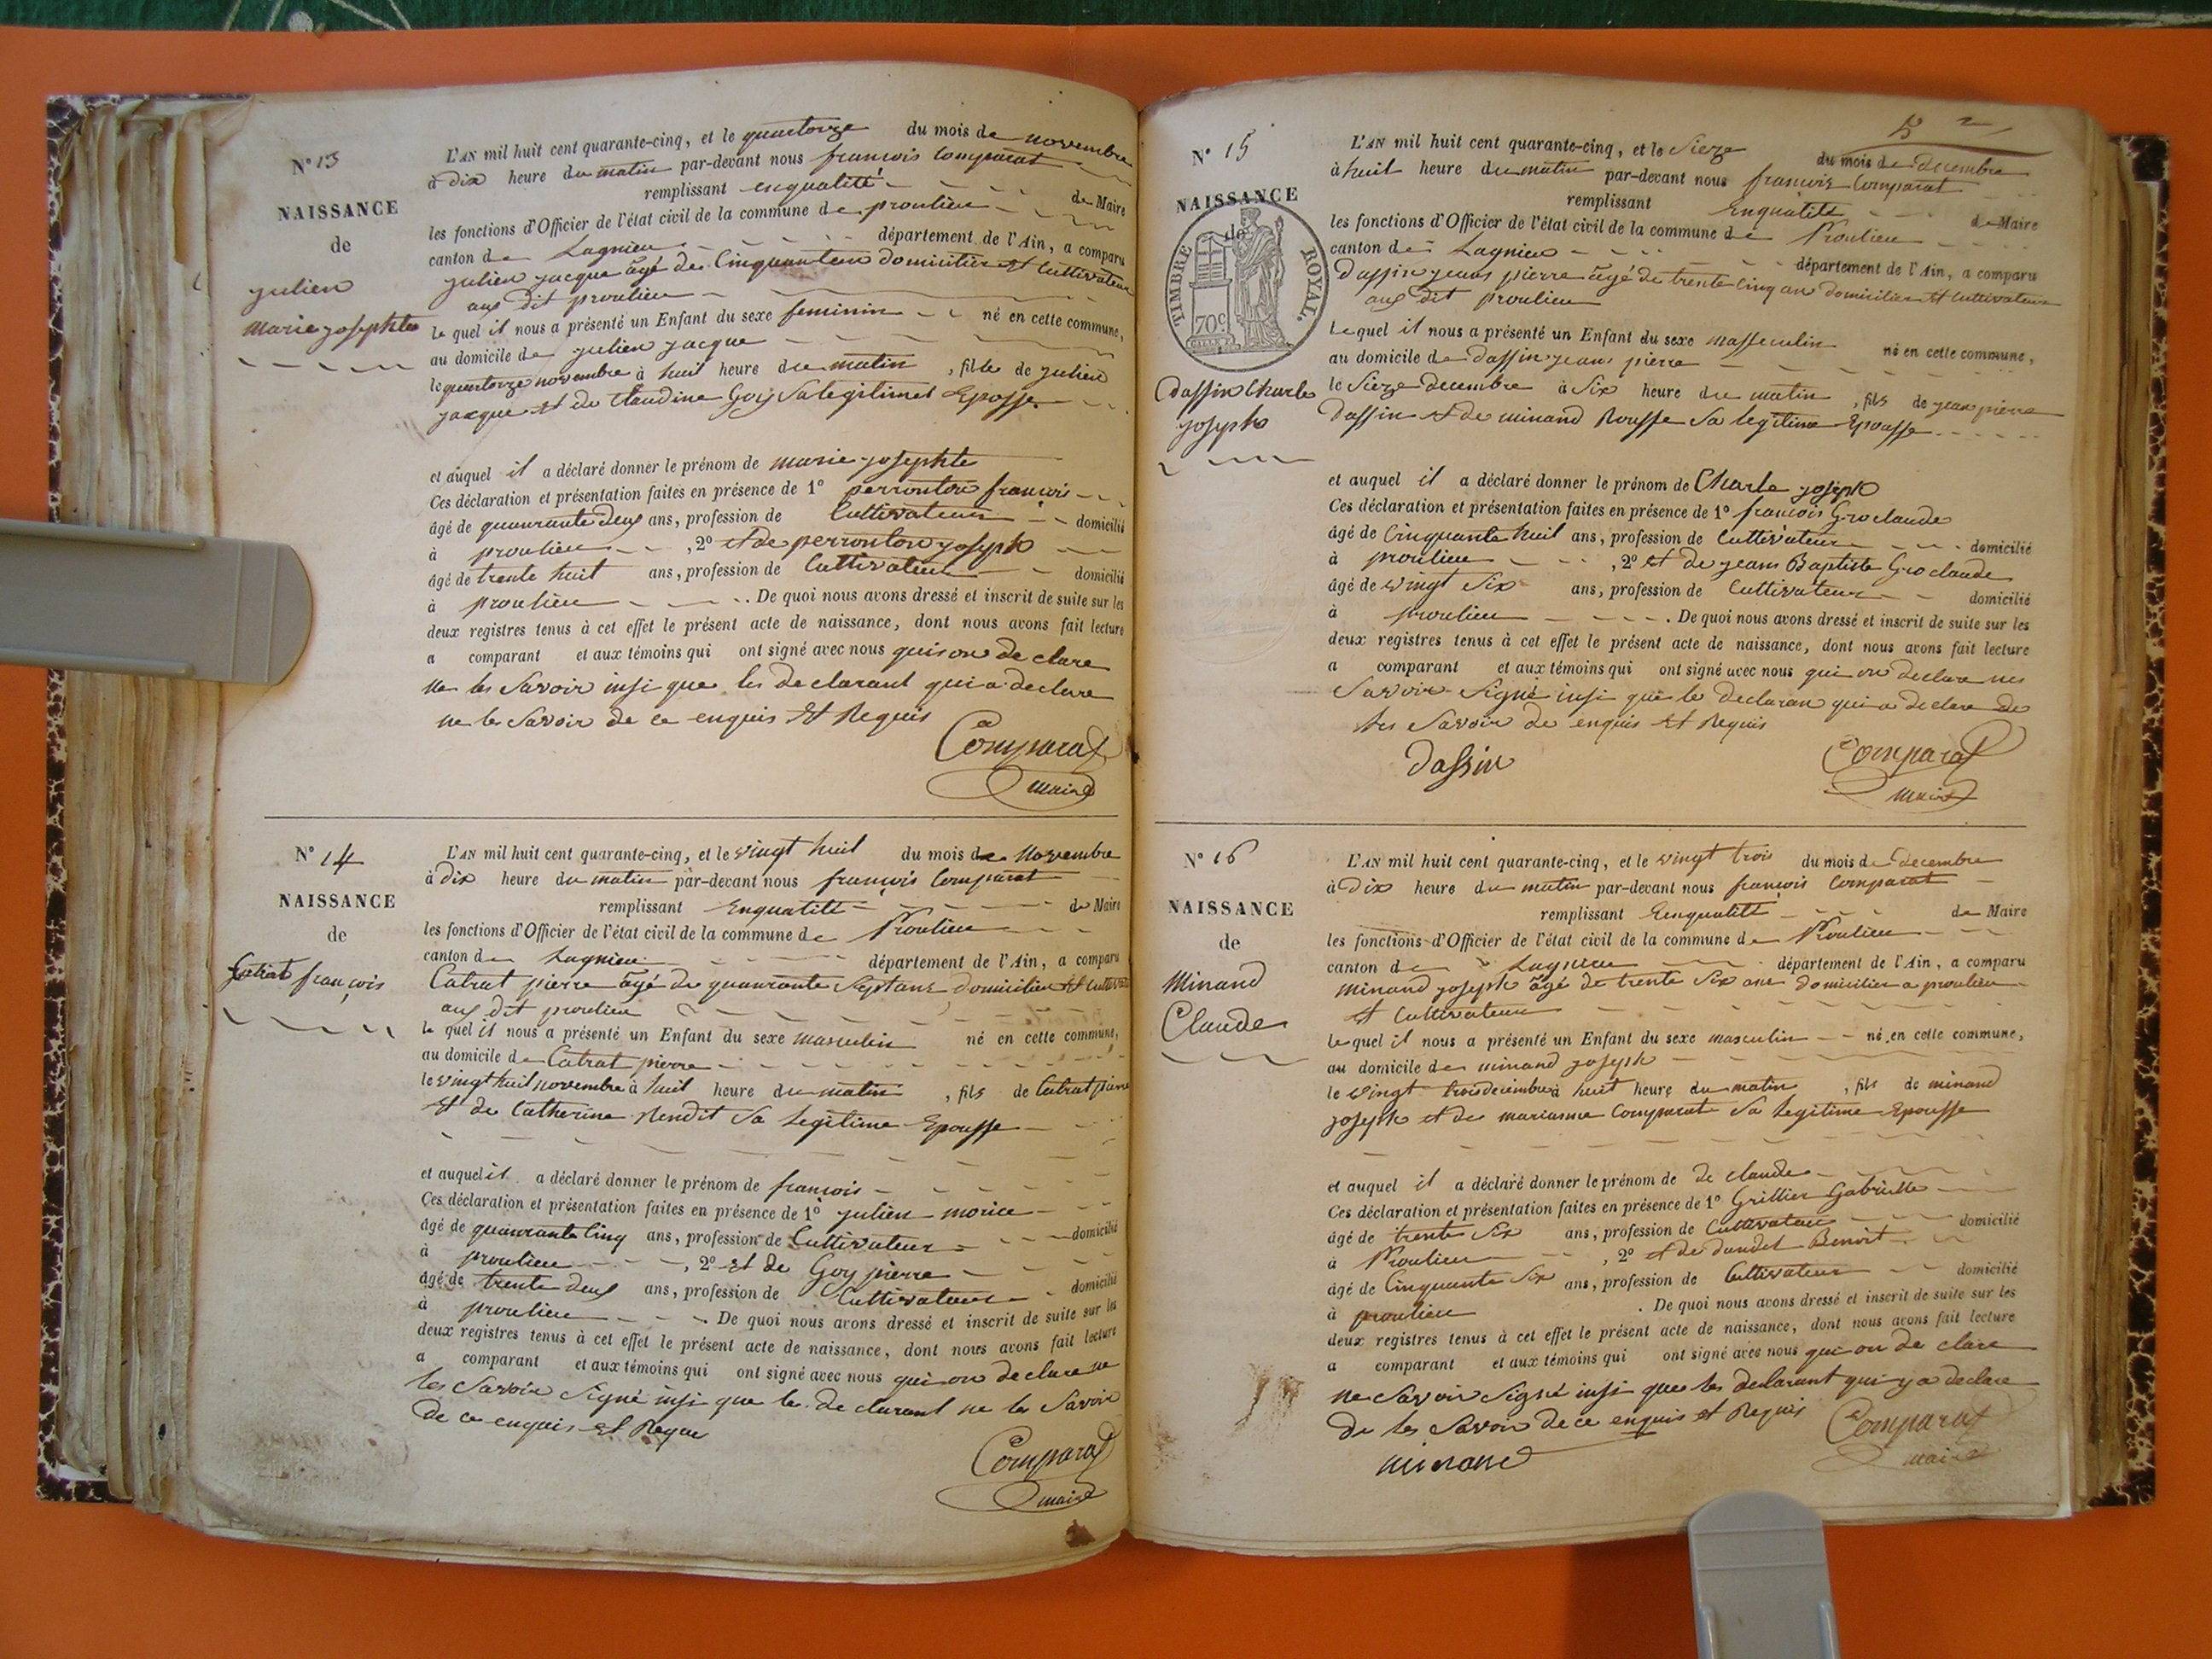 N° 13
NAISSANCE
de
julien
marie josephte
L'AN mil huit cent quarante-cinq, et le quatorze du mois de novembre
à dix heure du matin par-devant nous francois Comparat
remplissant enqualité de Maire
les fonctions d'Officier de l'état civil de la commune de proulieu
canton de Lagnieu département de l'Ain, a comparu
julien jacque âgé de Cinquante domicilier et Cultivateur
aux dit proulieu
le quel il nous a présenté un Enfant du sexe feminin né en cette commune,
au domicile de julien jacque
le quatorze novembre à huit heure du matin, fille de julien
jacque et de Claudine Goy Salegitimes Eposse
et auquel il a déclaré donner le prénom de marie josephte
Ces déclaration et présentation faites en présence de 1° perrouton francois
âgé de quaurante deux ans, profession de Cultivateur domicilié
à proulieu, 2° et de perrouton joseph
âgé de trente huit ans, profession de Cultivateur domicilié
à proulieu. De quoi nous avons dressé et inscrit de suite sur les
deux registres tenus à cet effet le présent acte de naissance, dont nous avons fait lecture
a comparant et aux témoins qui ont signé avec nous quison declare
ne les Savoir insi que les declarant qui a declare
ne les Savoir de ce enquis et Requis
Comparat
maire
N° 14
NAISSANCE
de
Catrat françois
L'AN mil huit cent quarante-cinq, et le vingt huit du mois de Novembre
à dix heure du matin par-devant nous françois Comparat
remplissant Enqualité de Maire
les fonctions d'Officier de l'état civil de la commune de Proulieu
canton de Lagnieu département de l'Ain, a comparu
Catrat pierre âgé de quaurante Septans domicilier et Cultivateur
aux dit proulieu
le quel il nous a présenté un Enfant du sexe masculin né en cette commune,
au domicile de Catrat pierre
le vingt huit novembre à huit heure du matin, fils de Catrat pierre
et de Catherine Rendit Sa legitime Epousse
et auquel il a déclaré donner le prénom de francois
Ces déclaration et présentation faites en présence de 1° julien morice
âgé de quaurante Cinq ans, profession de Cultivateur domicilié
à proulieu, 2° Et de Goy pierre
âgé de trente deux ans, profession de Cultivateur domicilié
à proulieu De quoi nous avons dressé et inscrit de suite sur les
deux registres tenus à cet effet le présent acte de naissance, dont nous avons fait lecture
a comparant et aux témoins qui ont signé avec nous qui on declare ne
les Savoir Signé insi que le declarant ne les Savoir
de ce enquis et Reque
Comparat
maire
5
N° 15
NAISSANCE
de
TIMBRE ROYAL.
70c
Dassin Charle
joseph
L'AN mil huit cent quarante-cinq, et le Sieze du mois de decembre
à huit heure du matin par-devant nous françois Comparat
remplissant Enqualité de Maire
les fonctions d'Officier de l'état civil de la commune de Proulieu
canton de Lagnieu département de l'Ain, a comparu
Dassin jean pierre âgé de trente Cinq ans domicilier et Cultivateur
aux dit proulieu
le quel il nous a présenté un Enfant du sexe masseculin né en cette commune,
au domicile de Dassin jean pierre
le Sieze decembre à Six heure du matin, fils de jean pierre
Dassin et de minand Rousse Sa legitime Epousse
et auquel il a déclaré donner le prénom de Charle joseph
Ces déclaration et présentation faites en présence de 1° francois Groclaude
âgé de Cinquante huit ans, profession de Cultivateur domicilié
à proulieu, 2° et de jean Baptiste Groclaude
âgé de vingt Six ans, profession de Cultivateur domicilié
à proulieu. De quoi nous avons dressé et inscrit de suite sur les
deux registres tenus à cet effet le présent acte de naissance, dont nous avons fait lecture
a comparant et aux témoins qui ont signé avec nous qui on declare nes
Savoir Signé insi que le declaran qui a declare de
les Savoir de enquis et Requis
Dassin
Comparat
maire
N° 16
NAISSANCE
de
Minand
Claude
L'AN mil huit cent quarante-cinq, et le vingt trois du mois de decembre
à Dix heure du matin par-devant nous françois Comparat
remplissant Eenqualité de Maire
les fonctions d'Officier de l'état civil de la commune de Proulieu
canton de Lagnieu département de l'Ain, a comparu
minand joseph âgé de trente Six ans domicilier a proulieu
et Cultivateur
le quel il nous a présenté un Enfant du sexe masculin né en cette commune,
au domicile de minand joseph
le vingt trois decembre à huit heure du matin, fils de minand
joseph et de marianne Comparat Sa legitime Epousse
et auquel il a déclaré donner le prénom de de claude
Ces déclaration et présentation faites en présence de 1° Grillier Gabrielle
âgé de trente Six ans, profession de Cultivateur domicilié
à Proulieu, 2° et de dandel Benoit
âgé de Cinquante Six ans, profession de Cultivateur domicilié
à proulieu. De quoi nous avons dressé et inscrit de suite sur les
deux registres tenus à cet effet le présent acte de naissance, dont nous avons fait lecture
a comparant et aux témoins qui ont signé avec nous qui on de clare
ne Savoir Signé insi que les declarant qui y a declare
de les Savoir de ce enquis et Requis
Comparat
maire
minand